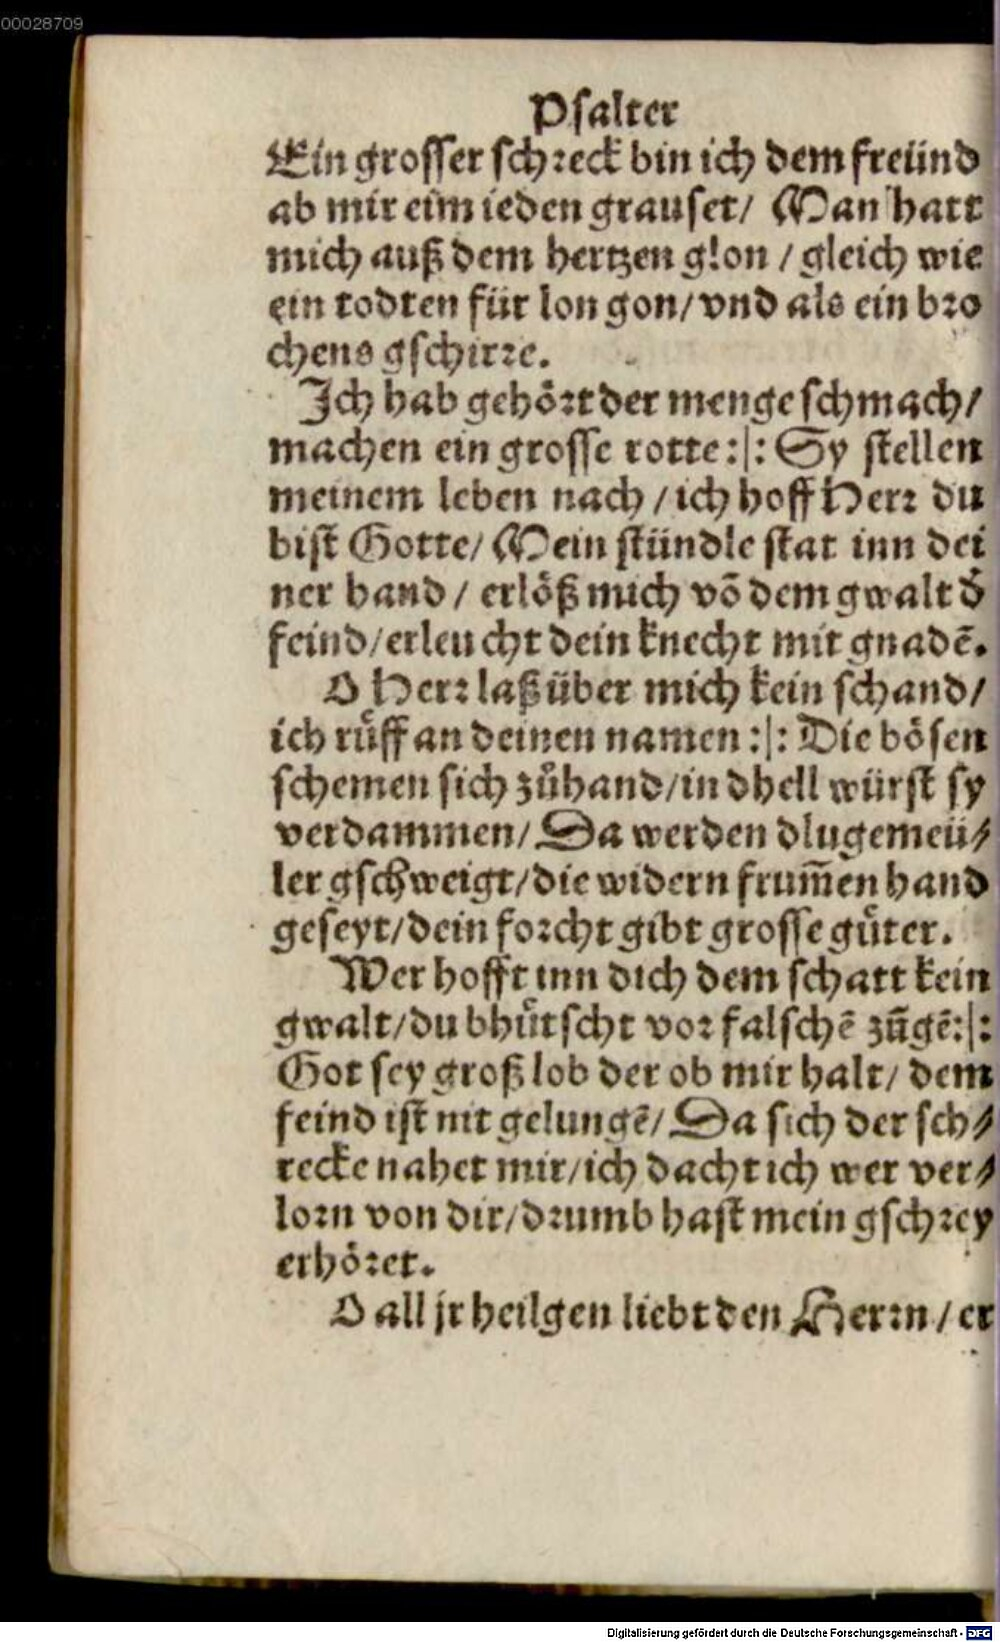 00028709
Psalter
Ein grosser schreck bin ich dem freünd
ab mir eim ieden grauset/ Man hatt
mich auß dem hertzen glon / gleich wie
ein todten für lon gon/ vnd als ein bro
chens gschirre.
Jch hab gehört der menge schmach/
machen ein grosse rotte:|: Sy stellen
meinem leben nach / ich hoff Herr du
bist Gotte/ Mein stündle stat inn dei
ner hand / erlöß mich võ dem gwalt d̃
feind/erleucht dein knecht mit gnadẽ.
O Herr laß über mich kein schand/
ich růff an deinen namen :|: Die bösen
schemen sich zůhand/in dhell würst sy
verdammen/ Da werden dlugemeü⸗
ler gschweigt/die widern frum̃en hand
geseyt/dein forcht gibt grosse gůter.
Wer hofft inn dich dem schatt kein
gwalt/du bhůtscht vor falschẽ zũgẽ:|:
Got sey groß lob der ob mir halt/ dem
feind ist nit gelungẽ/ Da sich der sch⸗
recke nahet mir/ich dacht ich wer ver⸗
lorn von dir/drumb hast mein gschrey
erhöret.
O all jr heilgen liebt den Herrn / er
Digitalisierung gefördert durch die Deutsche Forschungsgemeinschaft - DFG